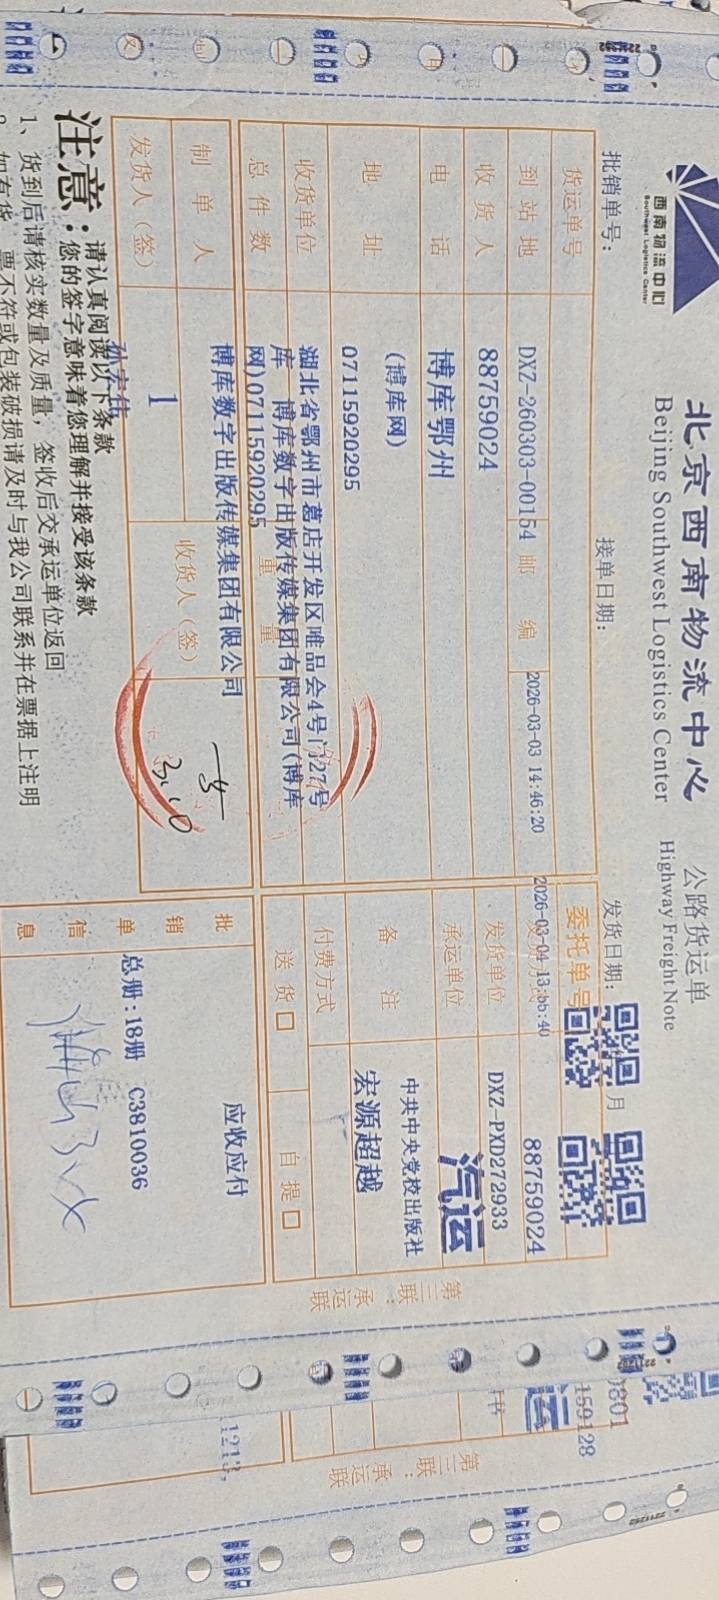 西南物流中心
Southwest Logistics Center
北京西南物流中心
Beijing Southwest Logistics Center
公路货运单
Highway Freight Note
批销单号：
接单日期：
发货日期：
月
货运单号
委托单号
到站地
DXZ-260303-00154
邮编
2026-03-03 14:46:20
88759024
收货人
88759024
发货单位
DXZ-PXD272933
电话
博库鄂州
承运单位
汽运
地址
(博库网)
07115920295
备注
中共中央党校出版社
宏源超越
收货单位
湖北省鄂州市葛店开发区唯品会4号门27号
库 博库数字出版传媒集团有限公司(博库
网)07115920295
付费方式
总件数
重量
送货
自提
制单人
博库数字出版传媒集团有限公司
收货人（签）
发货人（签）
1
批销单信息
应收应付
总册:18册 C3810036
注意：
请认真阅读以下条款
您的签字意味着您理解并接受该条款
1、货到后请核实数量及质量，签收后交承运单位返回
票不符或包装破损请及时与我公司联系并在票据上注明
第三联：承运联
159128
第三联：承运联